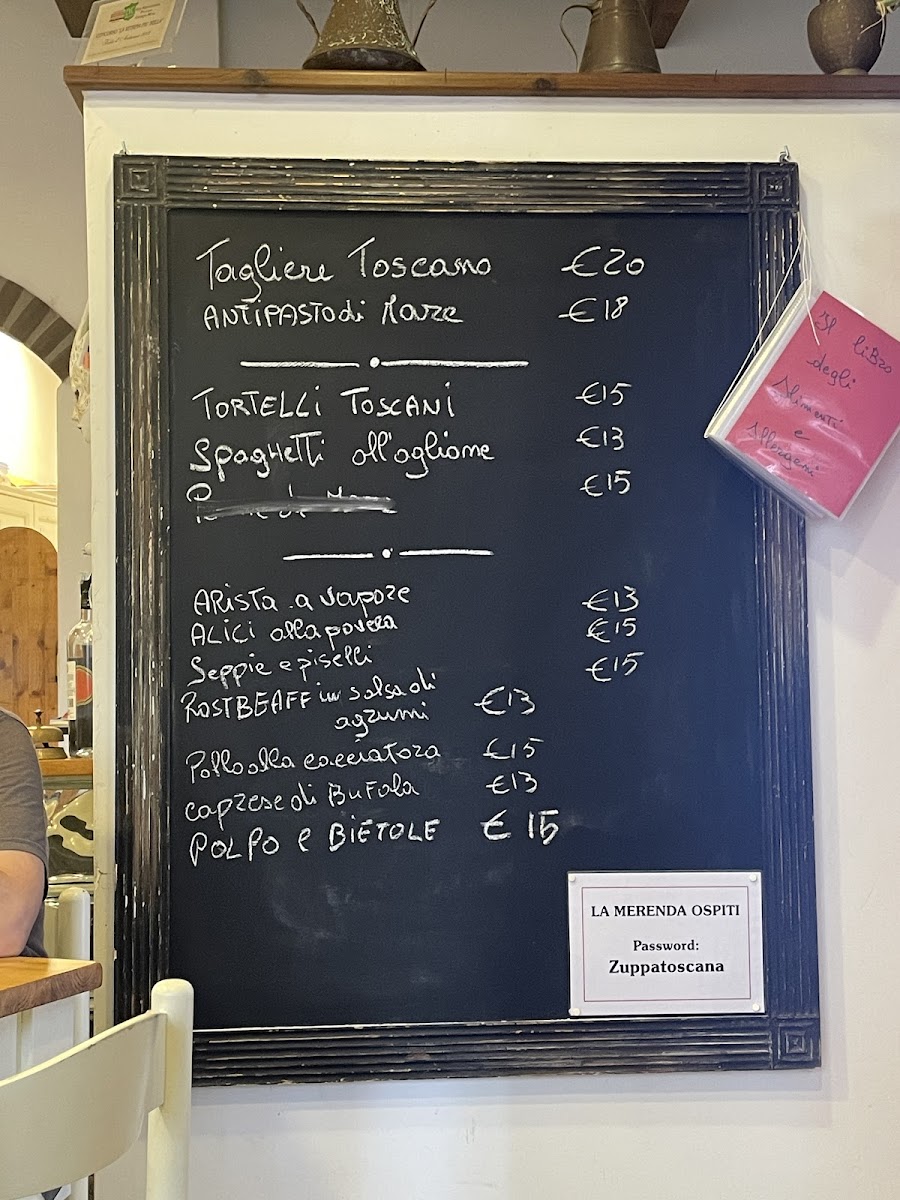 Tagliere Toscano €20
ANTIPASTO di Mare €18
TORTELLI TOSCANI €15
SpagHeTTi all'aglione €13
€15
ARiSTA a vapore €13
ALiCi alla povera €15
Seppie e piselli €15
ROSTBEAFF in salsa di
agrumi €13
Pollo alla cacciatora €15
caprese di BuFala €13
POLPO e BiETOLE €15
Il liBro
degli
Alimenti
e
Allergeni
LA MERENDA OSPITI
Password:
Zuppatoscana